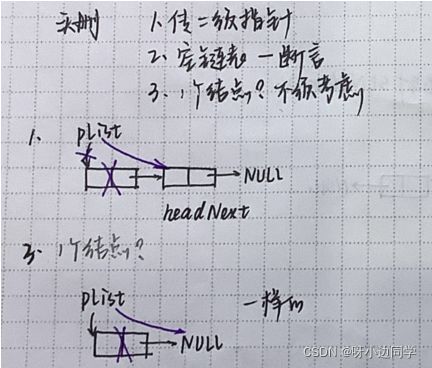 头删 1. 传二级指针
2. 空链表 — 断言
3. 1个结点? 不须考虑
1.
plist
NULL
headNext
3. 1个结点?
plist
NULL
一样的
CSDN @呀小边同学